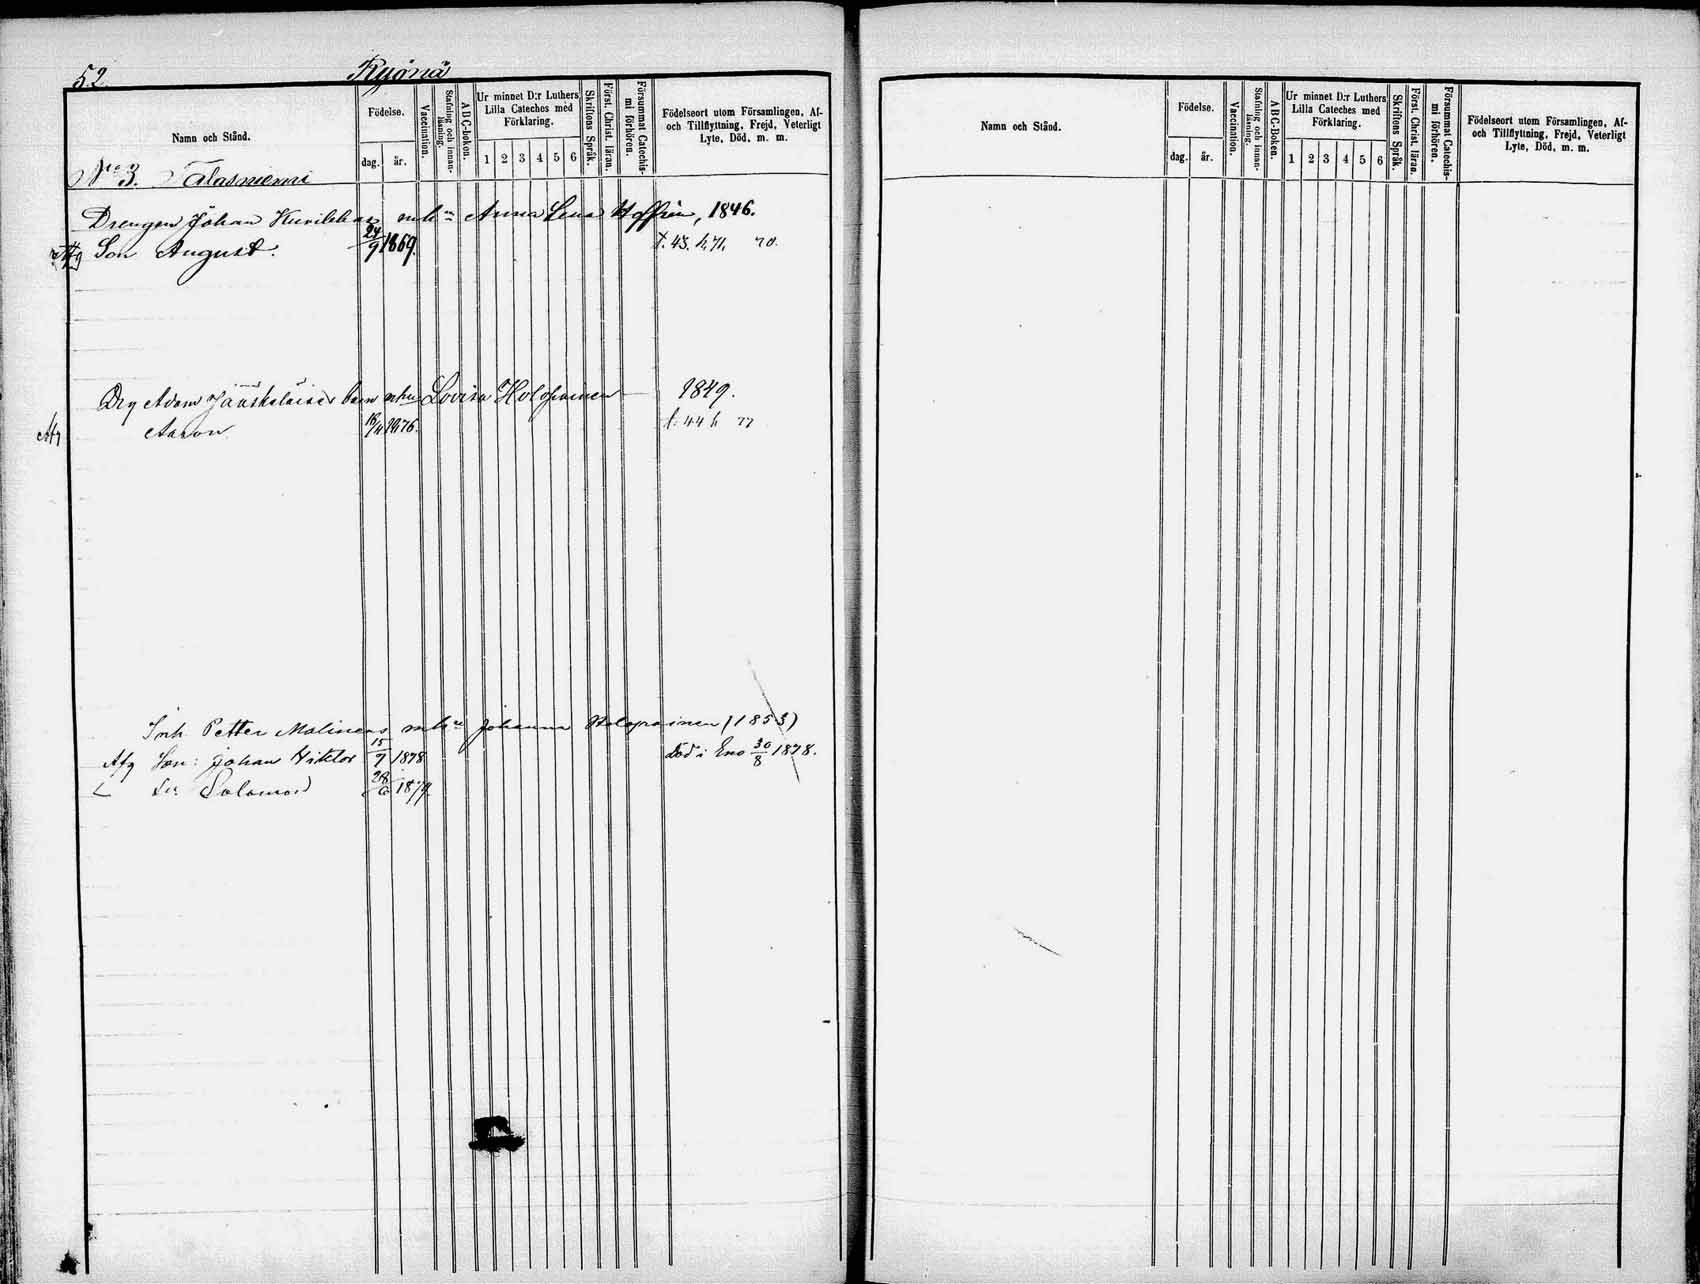 52.
Kyönä
Namn och Stånd.
Födelse.
dag. år.
Vaccination.
Stafning och innanläsning.
ABC-boken.
Ur minnet D:r Luthers Lilla Cateches med Förklaring.
1 2 3 4 5 6
Skriftens Språk.
Först. Christ. läran.
Försummat Catechismi förhören.
Födelseort utom Församlingen, Af- och Tillflyttning, Frejd, Veterligt Lyte, Död, m. m.
No 3. Talasniemi
Drengen Johan Anna Lena Hoffrén, 1846.
Afg Son August. 24/9 1869. 70.
Drg Adam Jääskeläises barn Lovisa Holopainen 1849.
Afg Aaron 1876. 77
Petter Malinens Johanna Holopainen (1853)
Afg Son: Johan Viktor 15/9 1878 Död i Eno 30/8 1878.
Salomon 28/6 1879.
Namn och Stånd.
Födelse.
dag. år.
Vaccination.
Stafning och innanläsning.
ABC-Boken.
Ur minnet D:r Luthers Lilla Cateches med Förklaring.
1 2 3 4 5 6
Skriftens Språk.
Först. Christ. läran.
Försummat Catechismi förhören.
Födelseort utom Församlingen, Af- och Tillflyttning, Frejd, Veterligt Lyte, Död, m. m.